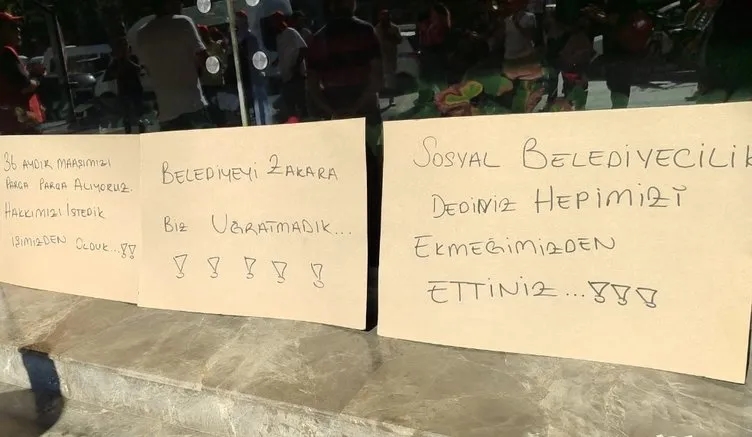 36 AYDIR MAAŞIMIZI
PARÇA PARÇA ALIYORUZ.
HAKKIMIZI İSTEDİK
İŞİMİZDEN OLDUK...!!
BELEDİYEYİ ZAKARA
BİZ UĞRATMADIK...
! ! ! ! !
SOSYAL BELEDİYECİLİK
DEDİNİZ HEPİMİZİ
EKMEĞİMİZDEN
ETTİNİZ...!!!